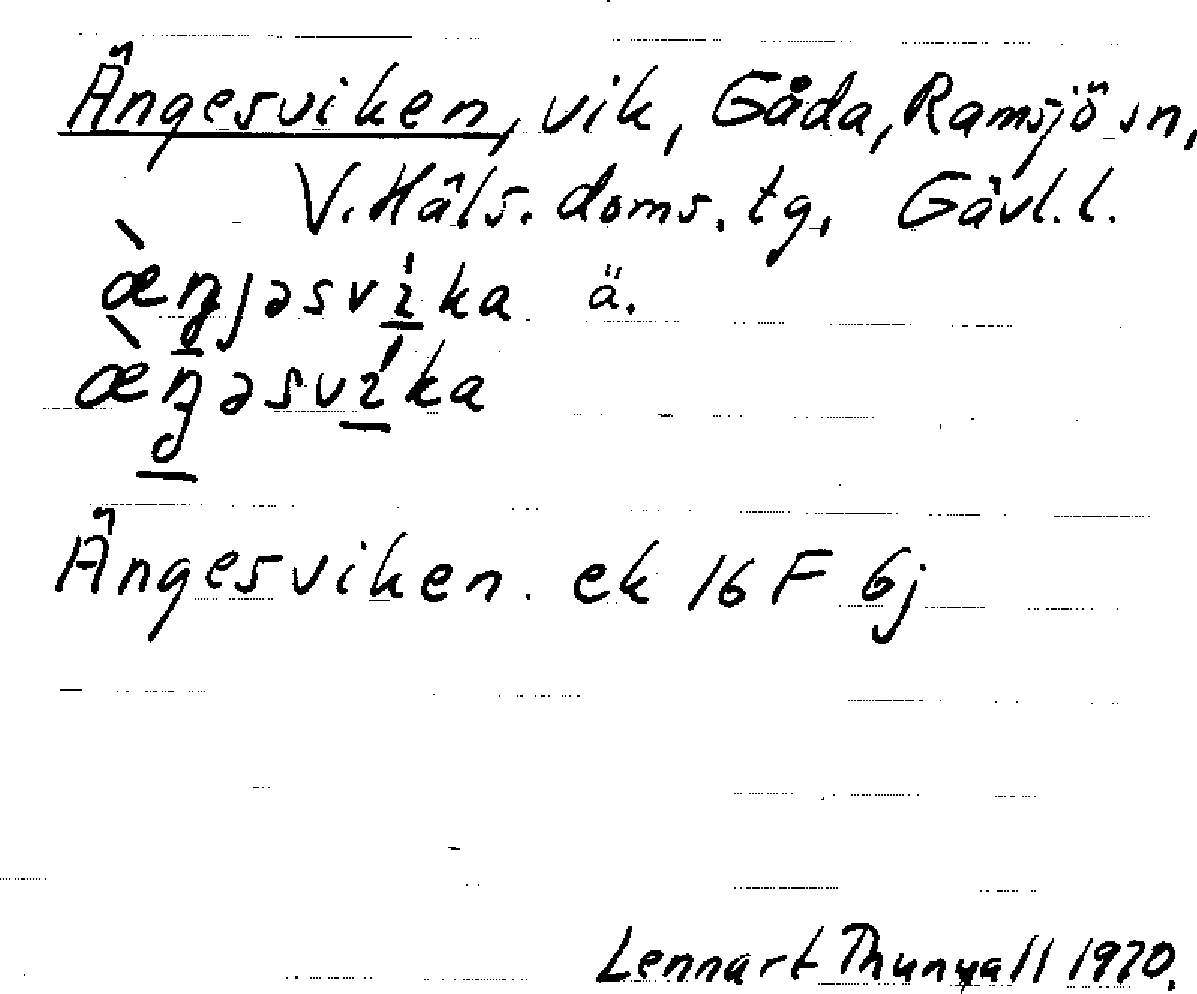 Ängesviken, vik, Gåda, Ramsjö sn,
V. Häls. doms. tg, Gävl. l.
æ̀ŋjəsvíka ä.
æ̀ŋəsvíka
Ängesviken. ek 16 F 6j
Lennart Thunvall 1970.